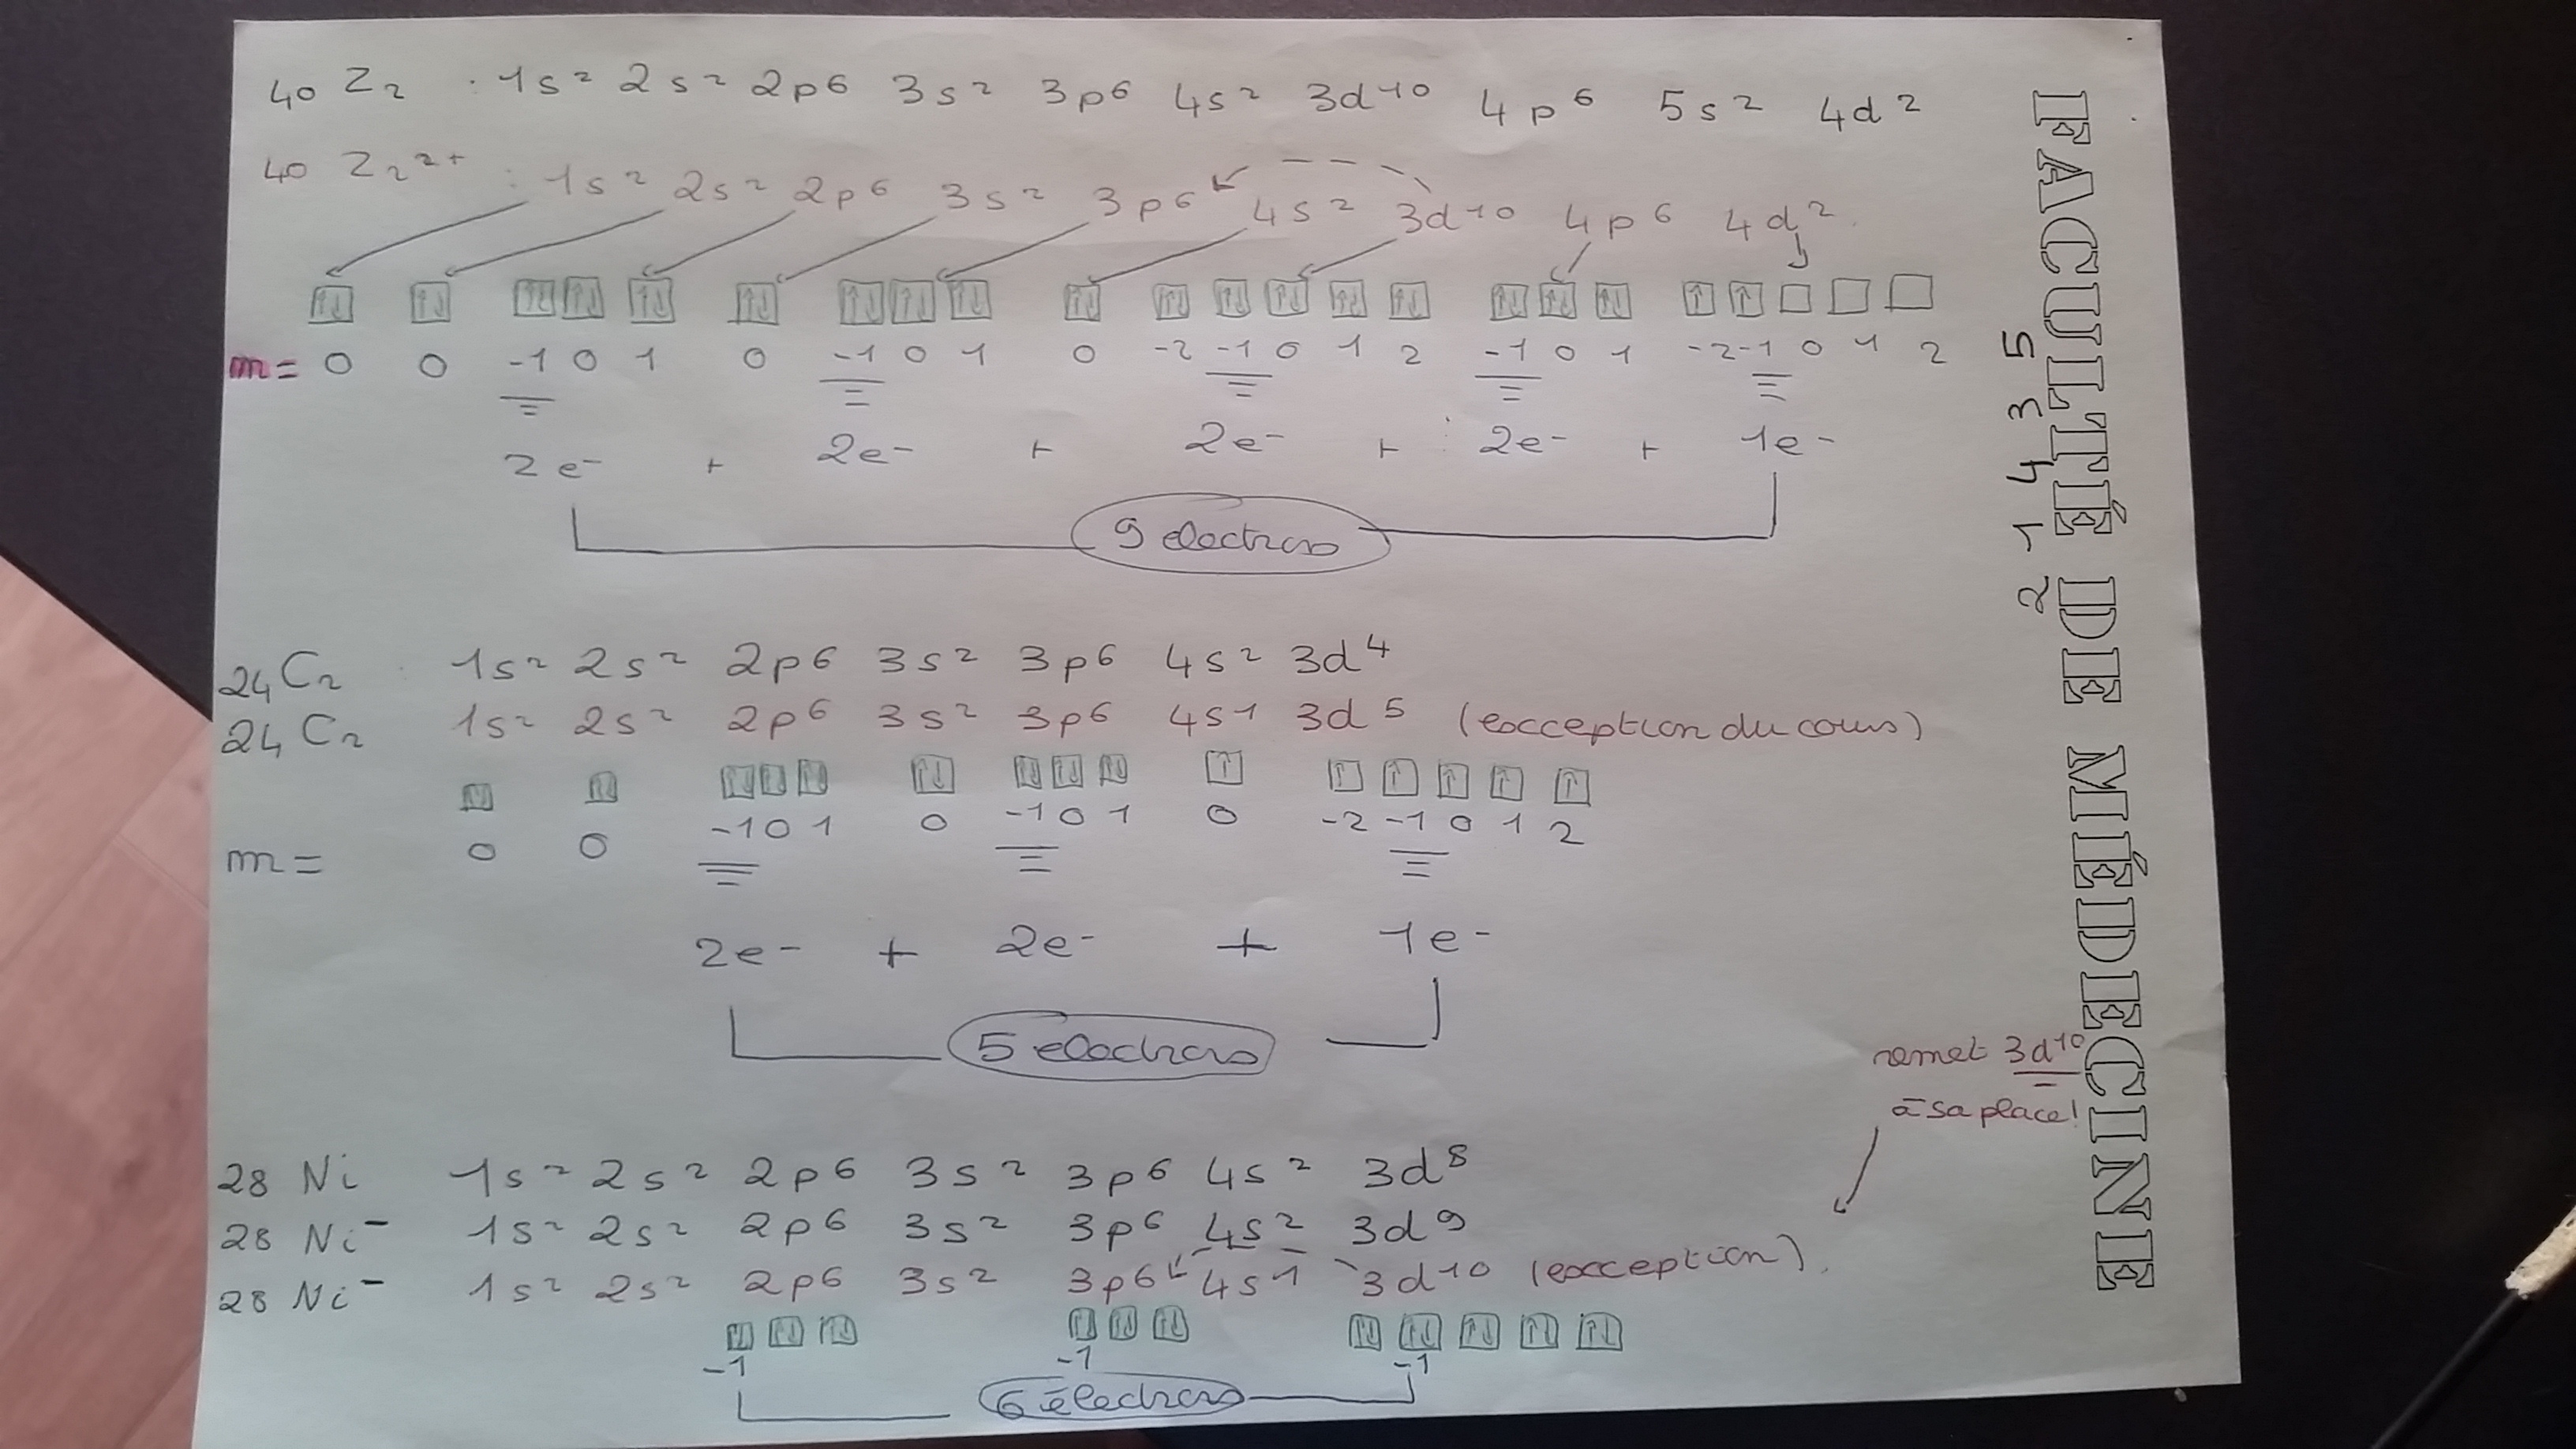 40 Zr : 1s² 2s² 2p⁶ 3s² 3p⁶ 4s² 3d¹⁰ 4p⁶ 5s² 4d²
40 Zr²⁺ : 1s² 2s² 2p⁶ 3s² 3p⁶ 4s² 3d¹⁰ 4p⁶ 4d².
m= 0 0 -1 0 1 0 -1 0 1 0 -2 -1 0 1 2 -1 0 1 -2 -1 0 1 2
2e⁻ + 2e⁻ + 2e⁻ + 2e⁻ + 1e⁻
9 electrons
24 Cr : 1s² 2s² 2p⁶ 3s² 3p⁶ 4s² 3d⁴
24 Cr 1s² 2s² 2p⁶ 3s² 3p⁶ 4s¹ 3d⁵ (exception du cours)
m= 0 0 -1 0 1 0 -1 0 1 0 -2 -1 0 1 2
2e⁻ + 2e⁻ + 1e⁻
5 electrons
remet 3d¹⁰
à sa place!
28 Ni 1s² 2s² 2p⁶ 3s² 3p⁶ 4s² 3d⁸
28 Ni⁻ 1s² 2s² 2p⁶ 3s² 3p⁶ 4s² 3d⁹
28 Ni⁻ 1s² 2s² 2p⁶ 3s² 3p⁶ 4s¹ 3d¹⁰ (exception).
-1 -1 -1
6 électrons
2 1 4 3 5
FACULTÉ DE MÉDECINE